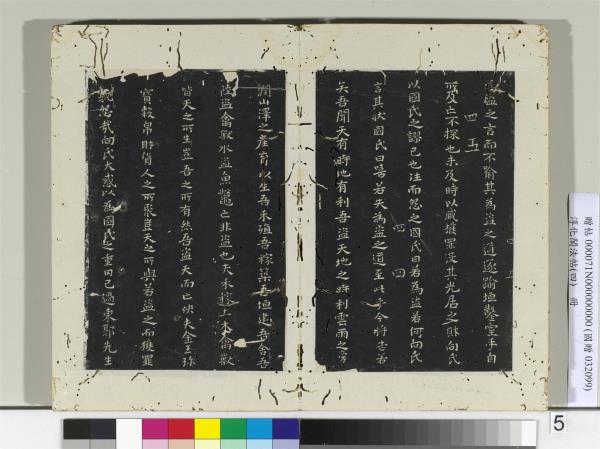 盜之言而不喻其為盜之道遂踰垣鑿室手目
四五
及亡不探也未及時以贓獲罪沒其先居之財向氏
以國氏之謬己也往而怨之國氏曰若為盜若何向氏
四四
言其狀國氏曰嘻若失為盜之道至此乎今將告若
矣吾聞天有時地有利吾盜天地之時利雲雨之滂
潤山澤之產育以生吾禾殖吾稼築吾垣建吾舍吾
陸盜禽獸水盜魚鼈亡非盜也夫禾稼土木禽獸
皆天之所生豈吾之所有然吾盜天而亡殃夫金玉珍
寶穀帛財貨人之所聚豈天之所與若盜之而獲罪
孰怨哉向氏大惑以為國氏之重罔己過東郭先生
贈帖 000071N000000000 (國贈 032099)
淳化閣法帖(四) 冊
5